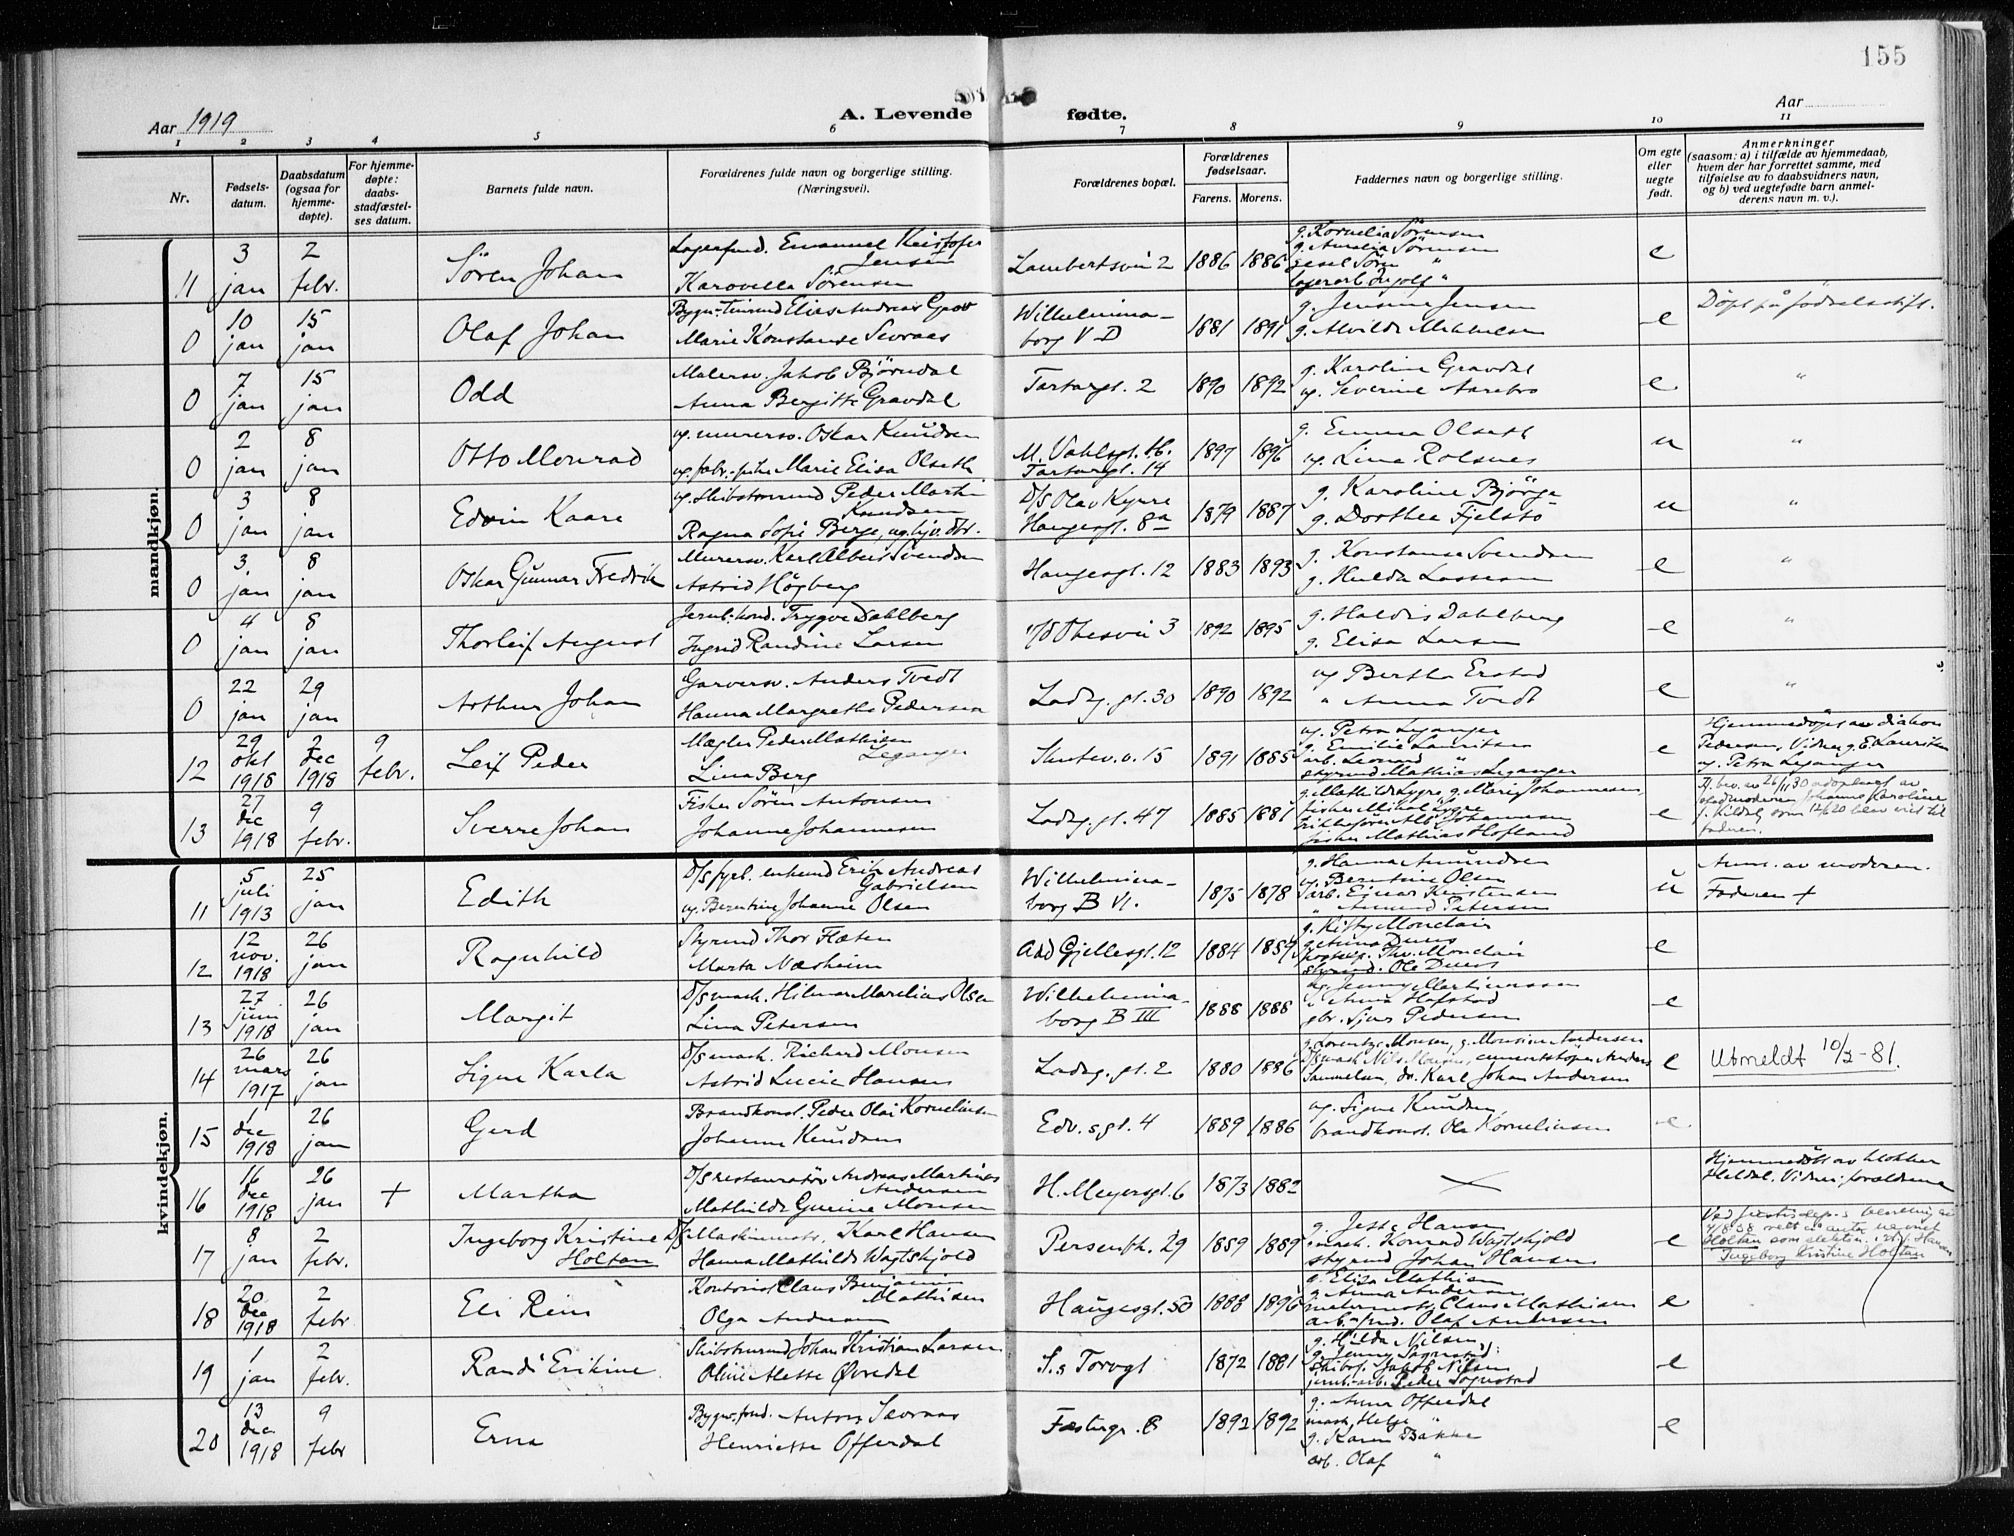 155
Aar 1919
A. Levende fødte.
Aar
1 2 3 4 5 6 7 8 9 10 11
Nr.
Fødsels-
datum.
Daabsdatum
(ogsaa for
hjemme-
døpte).
For hjemme-
døpte:
daabs-
stadfæstel-
ses datum.
Barnets fulde navn.
Forældrenes fulde navn og borgerlige stilling.
(Næringsvei).
Forældrenes bopæl.
Forældrenes
fødselsaar.
Farens. Morens.
Faddernes navn og borgerlige stilling.
Om egte
eller
uegte
født.
Anmerkninger
(saasom: a) i tilfælde av hjemmedaab,
hvem der har forrettet samme, med
tilføielse av to daabsvidners navn,
og b) ved uegtefødte barn anmel-
derens navn m. v.).
mandkjøn.
11 3 jan 2 febr. Sören Johan
Emanuel Kristofer Jensen
Karovella Sørensen
Lambertsvei 2 1886 1886
g. Kornelia Sörensen
g. Amalia Sörensen
e
0 10 jan 15 jan Olaf Johan
Elias Andreas Grov
Marie Konstanse Sevraas
Wilhelmina-
borg V-D 1881 1891
g. Jensine Jensen
g. Alvilde Mikkelsen
e Døpt på fødselsstift.
0 7 jan 15 jan Odd
Malersv. Jakob Björndal
Anna Bergitte Gravdal
Tartargt. 2 1890 1892
g. Karoline Gravdal
ug. Severine Aarebro
e "
0 2 jan 8 jan Otto Monrad
ug. murersv. Oskar Knudsen
ug. fabr.pike Marie Elisa Olseth
M. Vahlsgt. 16.
Tartargt. 14 1897 1896
g. Emma Olseth
ug. Lina Rolsnes
u "
0 3 jan 8 jan Edvin Kaare
Peder Martin Knudsen
Ragna Sofie Berge
D/S Olav Kyrre
Haugesgt. 8a 1879 1887
g. Karoline Björge
g. Dorthea Fjelstö
u "
0 3 jan 8 jan Oskar Gunnar Fredrik
Murersv. Karl Albert Svendsen
Astrid Högberg
Haugesgt. 12 1883 1893
g. Konstanse Svendsen
g. Hulda Lassesen
e "
0 4 jan 8 jan Thorleif August
Jernb.kond. Trygve Dahlberg
Ingrid Randine Larsen
1892 1895
g. Haldis Dahlberg
g. Elisa Larsen
e "
0 22 jan 29 jan Arthur Johan
Garversv. Anders Tvedt
Hanna Margrethe Pedersen
Ladeg. gt. 30 1890 1892
ug Bertha Erstad
" Anna Tvedt
e "
12 29 okt 1918 2 dec 1918 9 febr. Leif Peder
Mægler Peder Mathisen Leganger
Lina Berg
Skutev.v. 15 1891 1885
ug. Petra Leganger
g. Emilie Lauritsen
arb. Leonard "
styrmd Mathias Leganger
e Hjemmedøpt av diakon
Pedersen, Vidner g. E. Lauritsen
ug. Petra Leganger
13 27 dec 1918 9 febr. Sverre Johan
Fisker Sören Antonsen
Johanne Johannesen
Ladeg. gt. 47 1885 1881
g. Mathilde Lygre g. Marie Johannesen
fisker Mikal Lygre
fisker Mathias Hofland
e
kvindekjøn.
11 5 juli 1913 25 jan Edith
Erik Andreas Gabrielsen
ug. Berntine Johanne Olsen
Wilhelmina-
borg B VI. 1875 1878
g. Hanna Amundsen
ug. Berntine Olsen
arb. Einar Kristensen
" Amund Petersen
u Anm. av moderen.
Faderen +
12 12 nov. 1918 26 jan Ragnhild
Styrmd Thor Flæten
Marta Næsheim
Aad Gjellesgt. 12 1884
Thv. Monclair
styrmd. Ole Duus
e
13 27 juni 1918 26 jan Margit
D/S mask. Hilmar Marelius Olsen
Lina Petersen
Wilhelmina-
borg B III 1888 1888
ug. Jenny Martinussen
" Anna Hofstad
gbr. Sjur Pedersen
e
14 26 mars 1917 26 jan Signe Karla
D/S mask. Richard Monsen
Astrid Lucie Hansen
Ladeg. gt. 2 1880 1886
g. Lorentze Monsen, g. Monsine Andersen
D/S mask Nils Monsen, cementstøper Anders
Samuelsen, dr. Karl Johan Andersen
e Utmeldt 10/2-81.
15 1 dec 1918 26 jan Gerd
Brandkonst. Peder Olai Korneliussen
Johanne Knudsen
Edv. sgt. 4 1889 1886
ug. Signe Knudsen,
brandkonst. Ole Korneliussen
e
16 16 dec 1918 26 jan + Martha
D/S restauratör Andreas Martinus Andersen
Mathilde Gurine Monsen
H. Meyersgt. 6 1873 1882
Hjemmedøbt av klokker
Heldal. Vidner: forældrene
17 8 jan 2 febr. Ingeborg Kristine
Holtan
D/S Maskinmstr. Karl Hansen
Hanna Mathilde Wagtskjold
Persenbk. 29 1889 1889
g. Jesse Hansen
mask. Konrad Wagtskjold
styrmd Johan Hansen
e
Holtan som slektsn.
Ingeborg Kristine Holtan
18 20 dec 1918 2 febr Eli Reins
Kontorist Claus Benjamin Mathisen
Olga Andersen
Haugesgt. 50 1888 1896
g. Elisa Mathisen
g. Anna Andersen
malermstr. Claus Mathisen
arb.fmd. Olaf Andersen
e
19 1 jan 2 febr. Randi Erikine
Skibstmrmd Johan Kristian Larsen
Oline Alette Øvredal
S.s Torvgt 1872 1881
g. Hilda Nilsen,
g. Jenny Sognstad
Jakob Nilsen
jernb.-arb. Peder Sognstad
e
20 13 dec 1918 9 febr Erna
Bygn.fmd. Anton Sevraas
Henriette Offerdal
1892 1892
g. Anna Offerdal
mask. Helge "
g. Karen Bakke
arb. Olaf "
e